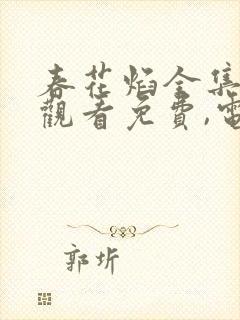 春花焰全集
觀看免費,電
郭圻